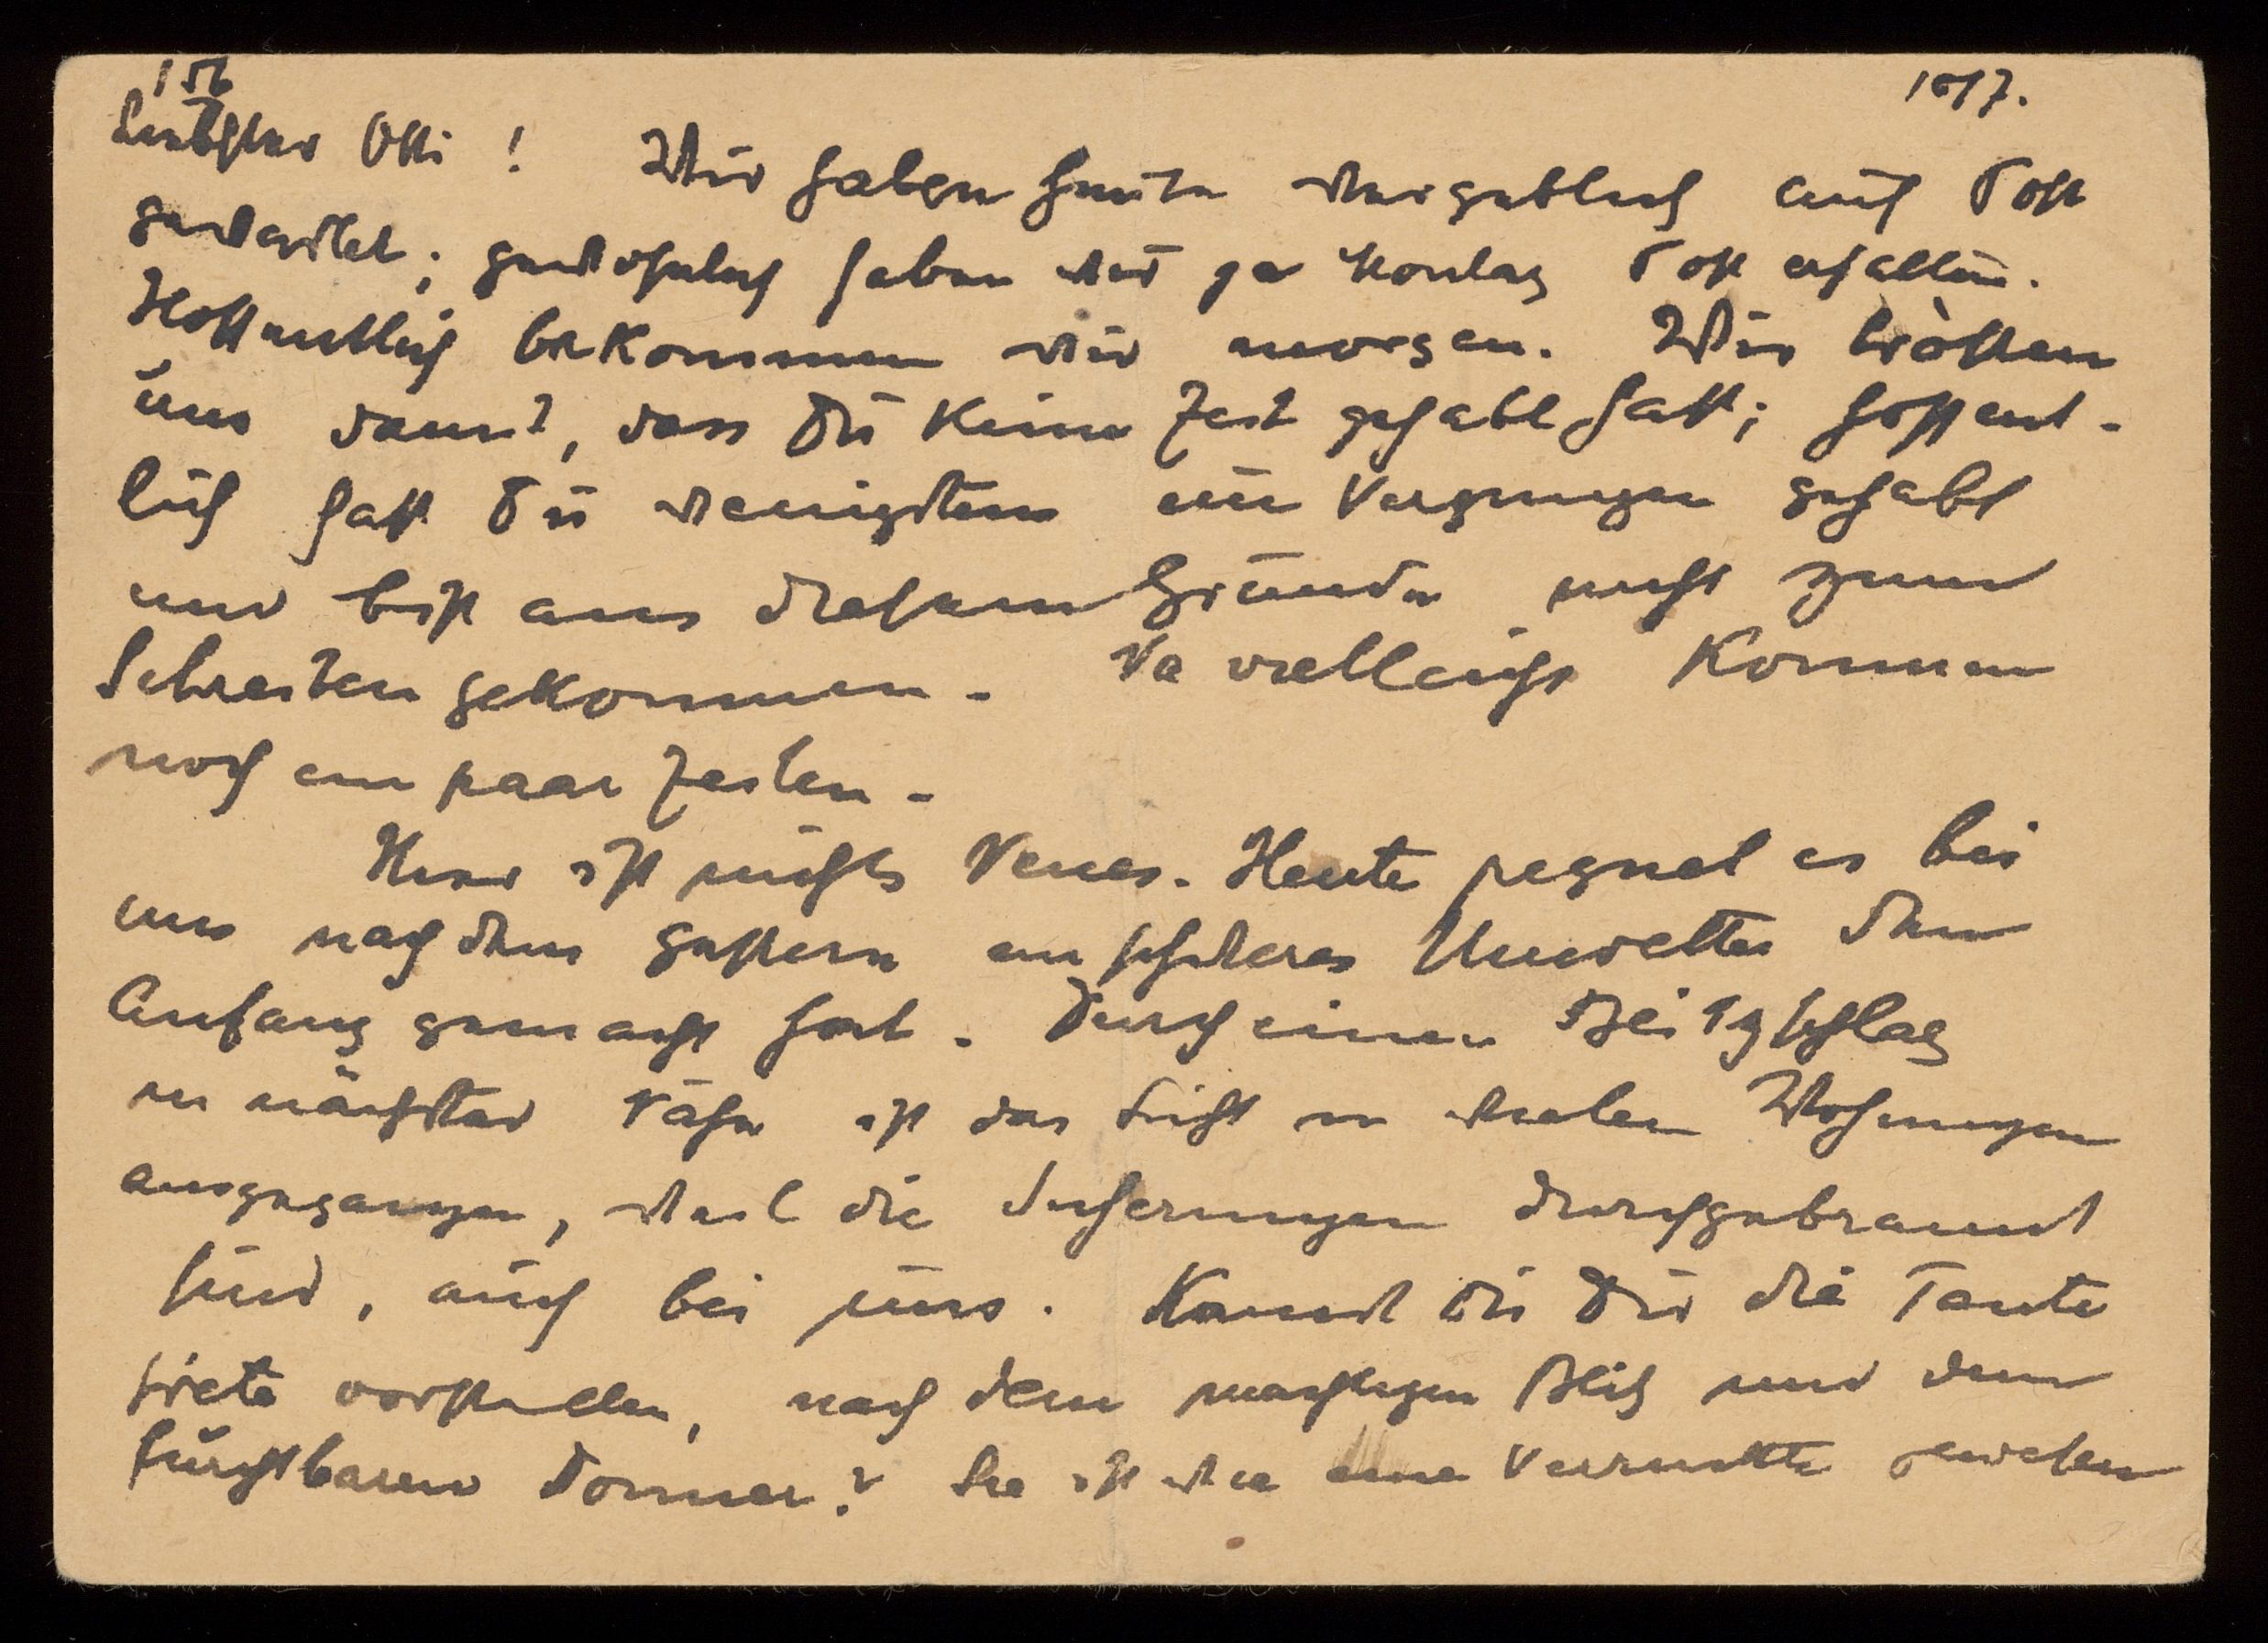 156 10/7.
Liebster Otti! Wir haben heute vergeblich auf Post
gewartet; gewöhnlich haben wir ja Montag Post erhalten.
Hoffentlich bekommen wir morgen. Wir trösten
uns damit, dass Du keine Zeit gehabt hast; hoffent-
lich hast Du wenigstens ein Vergnügen gehabt
und bist aus diesem Grunde nicht zum
Schreiben gekommen. Na vielleicht kommen
noch ein paar Zeilen.
Hier ist nichts Neues. Heute regnet es bei
uns nachdem gestern ein schweres Unwetter den
Anfang gemacht hat. Durch einen Blitzschlag
in nächster Nähe ist das Licht in vielen Wohnungen
ausgegangen, weil die Sicherungen durchgebrannt
sind, auch bei uns. Kannst Du Dir die Tante
vorstellen, nach dem mächtigen Blitz und dem
furchtbaren Donner? Sie ist wie eine Verrückte gewesen